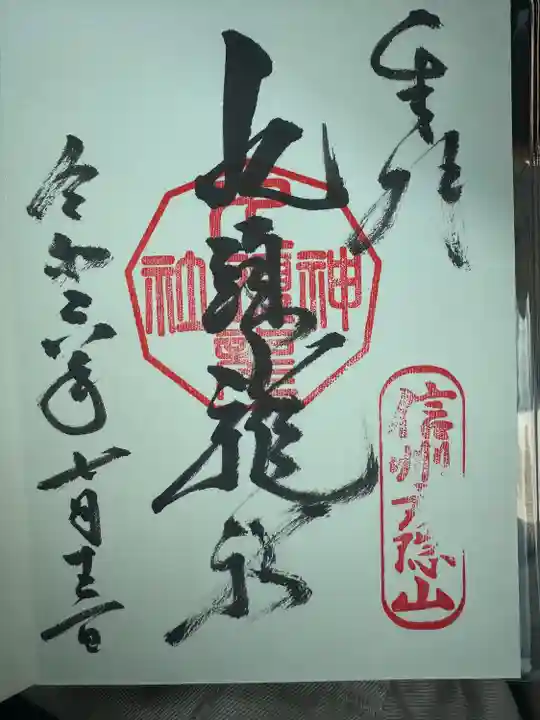 奉拝
信州戸隠山
九頭龍社
神社
令和六年七月十三日